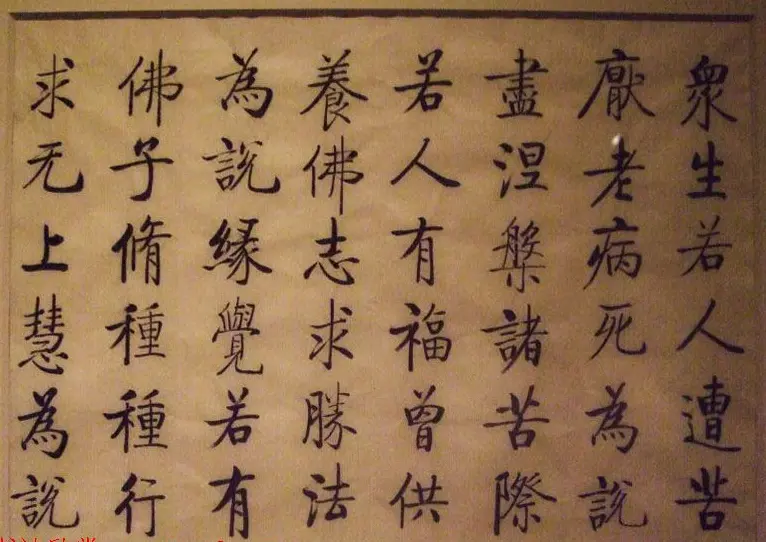 衆生若人遭苦
厭老病死為說
盡涅槃諸苦際
若人有福曾供
養佛志求勝法
為說緣覺若有
佛子脩種種行
求无上慧為說